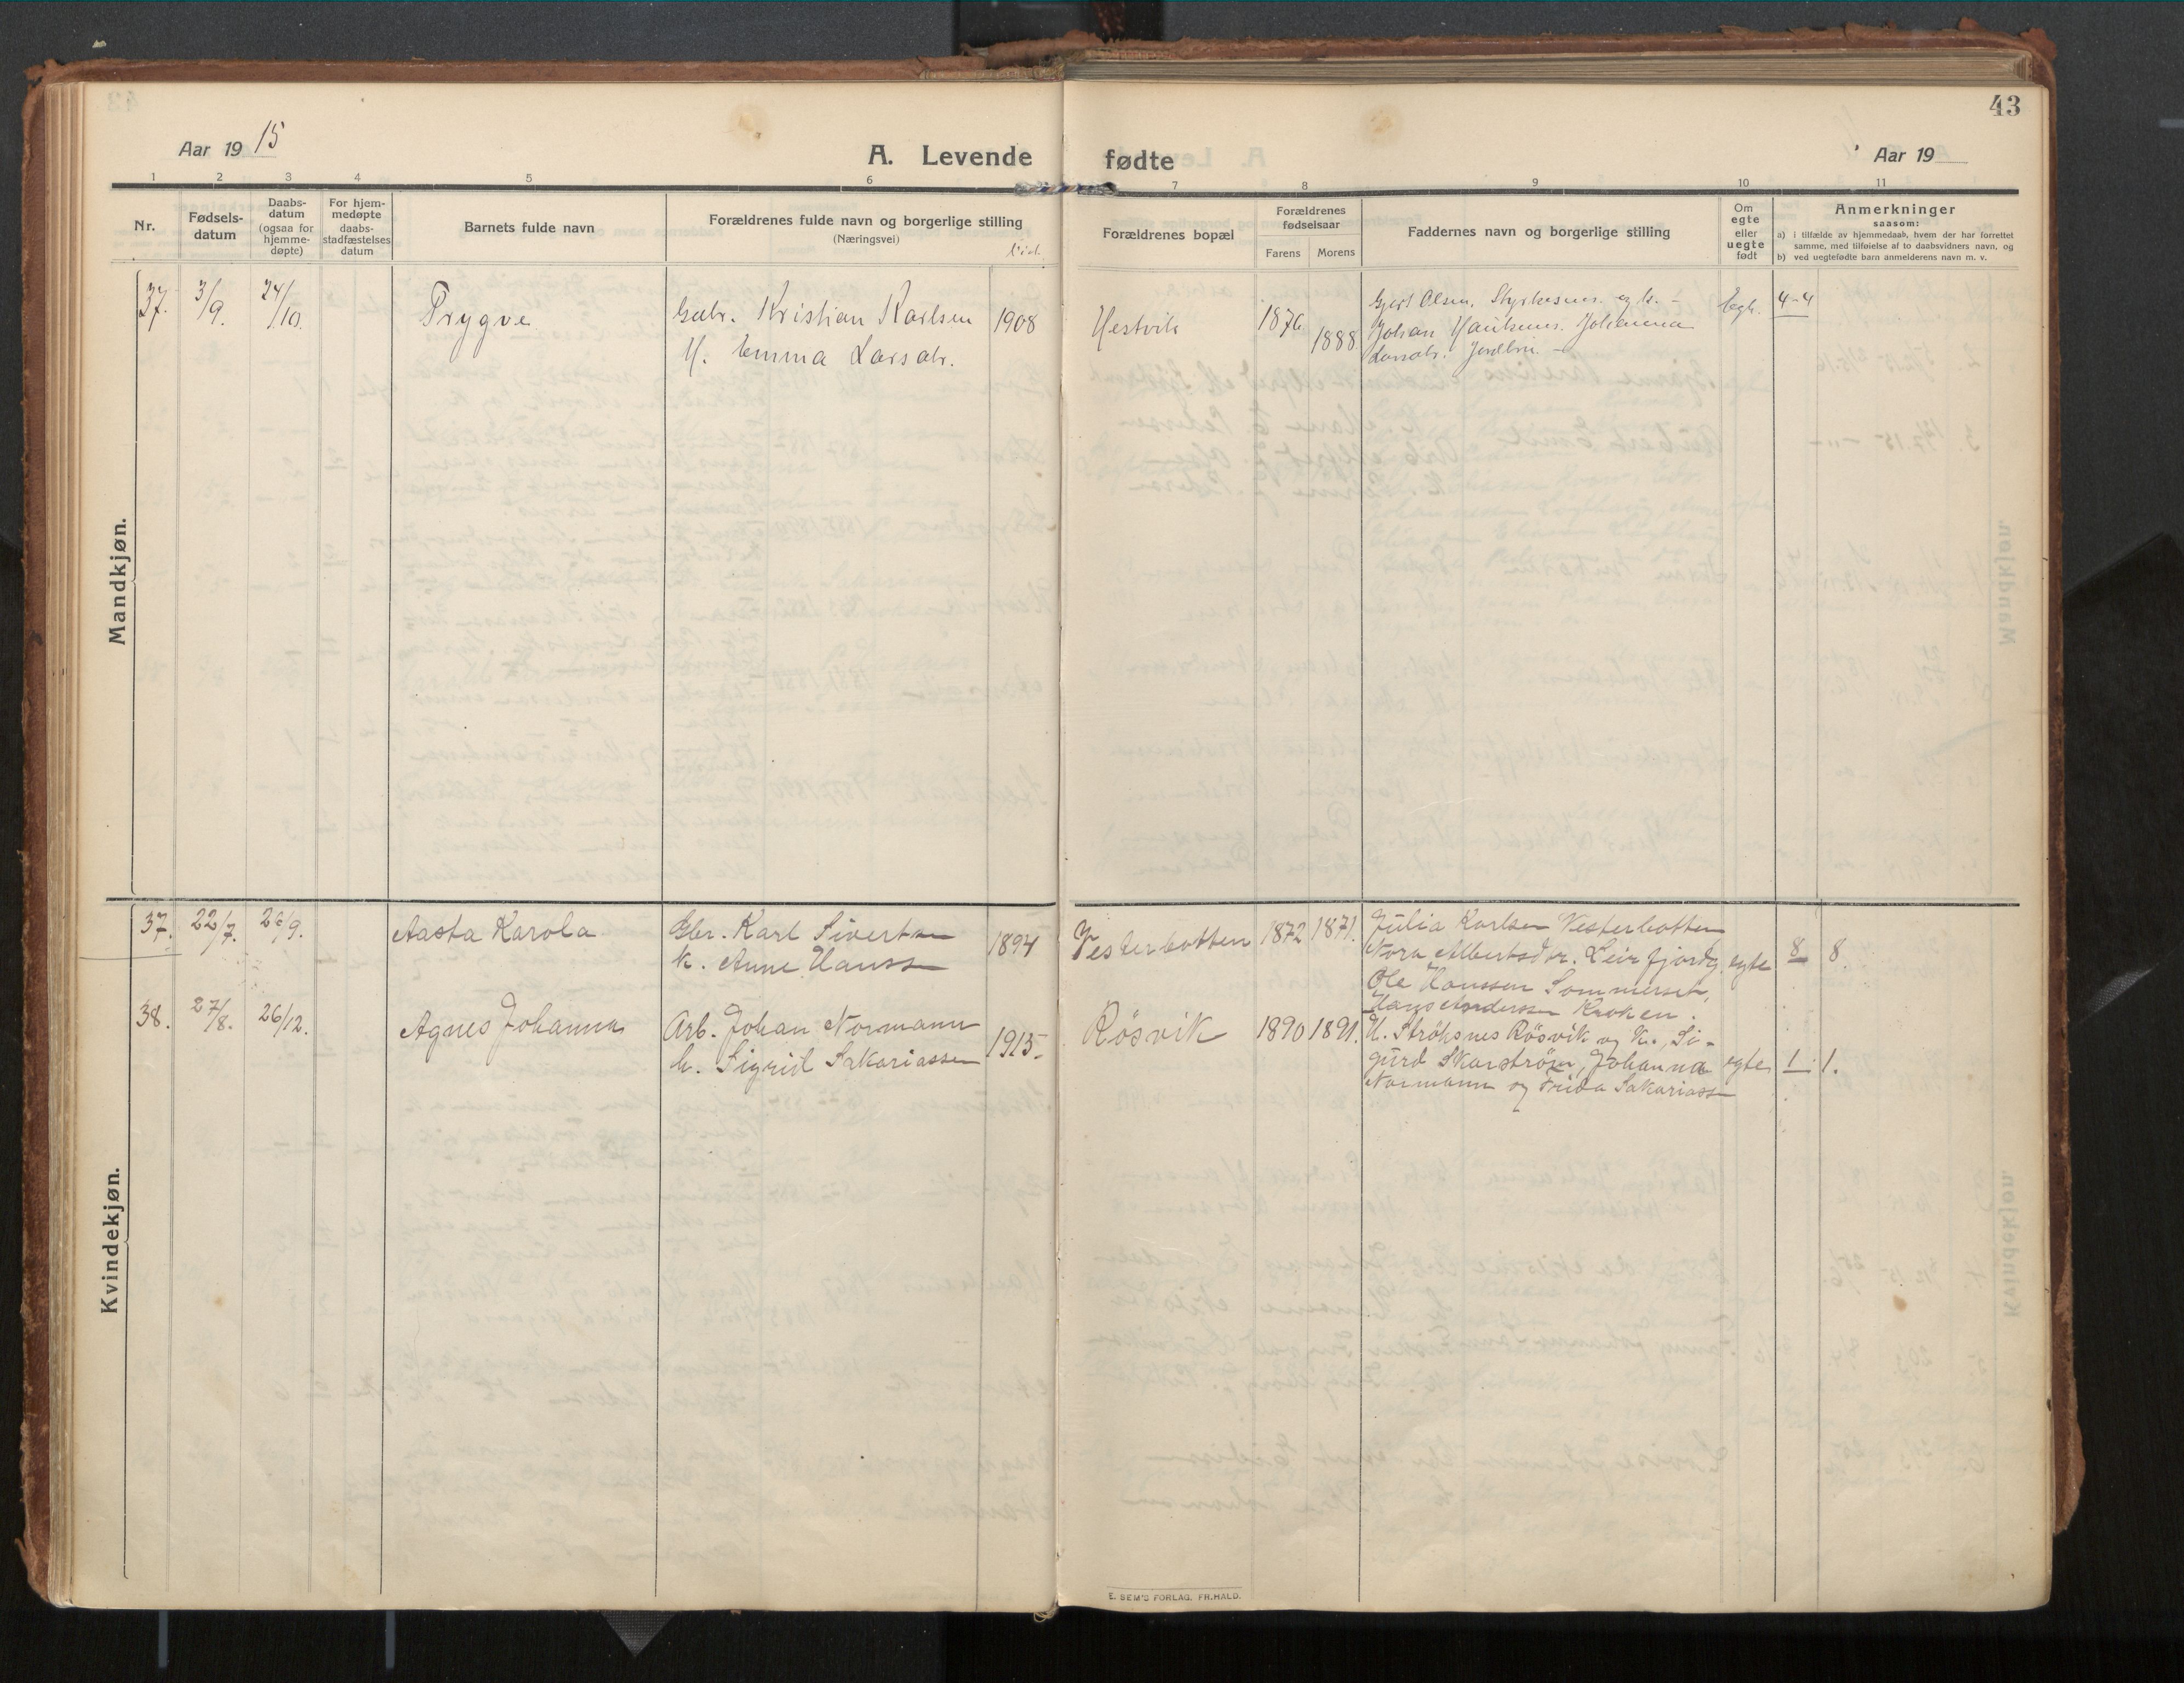 43
Aar 19 15
A. Levende fødte
Aar 19
1 2 3 4 5 6 7 8 9 10 11
Nr.
Fødsels-
datum
Daabs-
datum
(ogsaa for
hjemme-
døpte)
For hjem-
medøpte
daabs-
stadfæstelses
datum
Barnets fulde navn
Forældrenes fulde navn og borgerlige stilling
(Næringsvei)
Forældrenes bopæl
Forældrenes
fødselsaar
Farens Morens
Faddernes navn og borgerlige stilling
Om
egte
eller
uegte
født
Anmerkninger
saasom:
a) i tilfælde av hjemmedaab, hvem der har forrettet
samme, med tilføielse af to daabsvidners navn, og
b) ved uegtefødte barn anmelderens navn m. v.
Mandkjøn.
37. 3/9. 24/10. Trygve
Gbr. Kristian Karlsen
H. Emma Larsdtr.
1908
Hestvik
1876 1888
Gjert Olsen, Styrkesnes og k. -
Johan Johanna
Larsdtr.
Egte. 4-4
Kvindekjøn.
37. 22/7. 26/9. Aasta Karola
Gbr. Karl Sivertsen
k. Anne Hanssen
1894
Vesterbotten
1872 1871.
Julia Karlsen Vesterbotten
Nora Albertsdtr. Leirfjord,
Ole Hanssen Sommerset,
Hans Anderssen Kroken.
egte 8 8.
38. 27/8. 26/12. Agnes Johanna
Arb. Johan Normann
h. Sigrid Sakariassen
1915.
Røsvik
1890 1891.
H. Strøksnes Røsvik og K., Si-
gurd Skarstrøm, Johanna
Normann og Frida Sakariassen
egte 1. 1.
E. SEM'S FORLAG, FR.HALD.